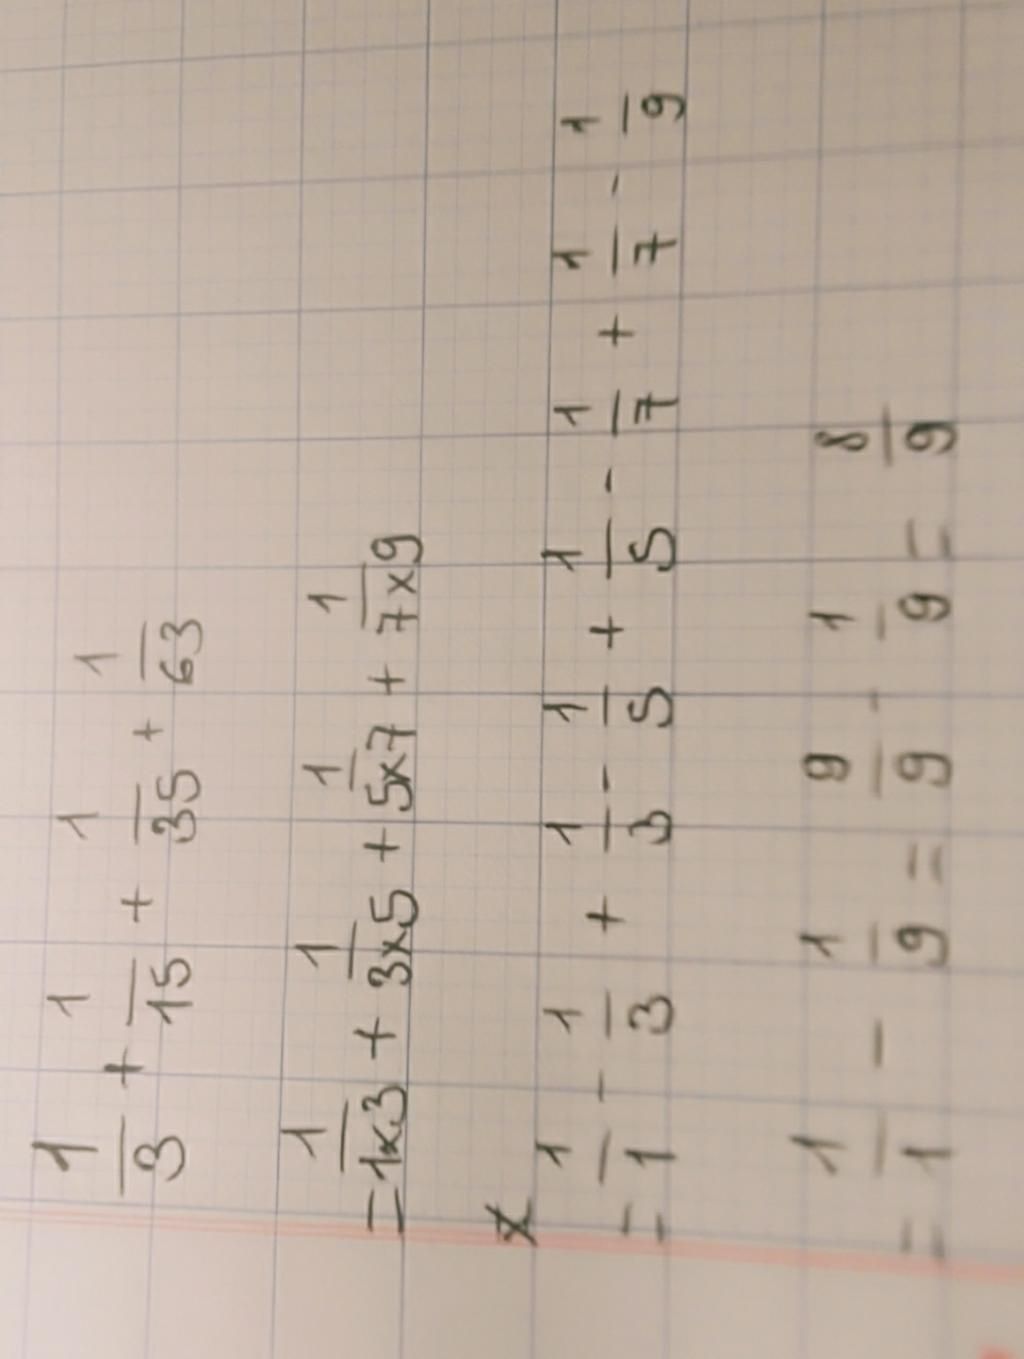 1/3 + 1/15 + 1/35 + 1/63
= 1/1x3 + 1/3x5 + 1/5x7 + 1/7x9
x
= 1/1 - 1/3 + 1/3 - 1/5 + 1/5 - 1/7 + 1/7 - 1/9
= 1/1 - 1/9 = 9/9 - 1/9 = 8/9